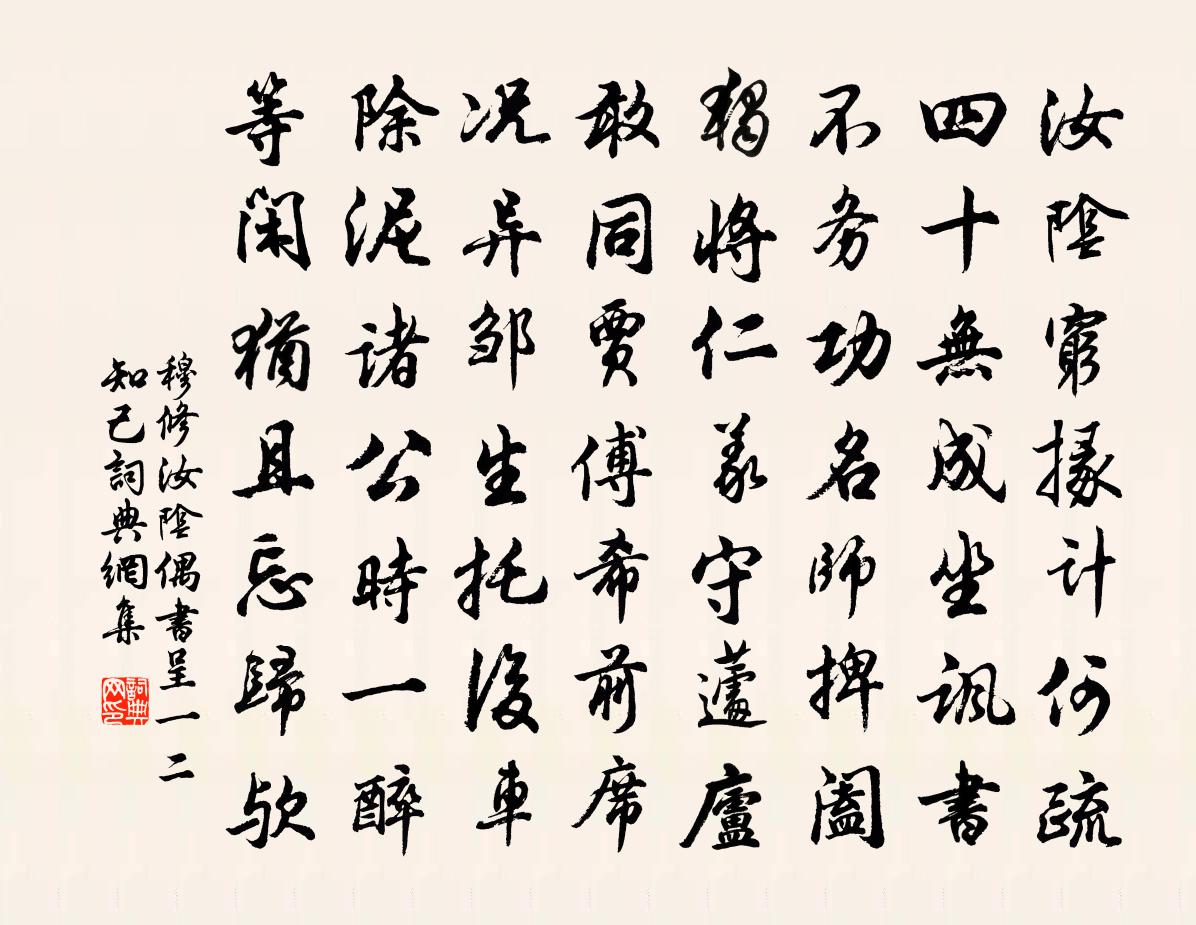 汝陰窮掾計何疏
四十無成坐諷書
不务功名師捭阖
獨將仁義守蘧廬
敢同賈傅希前席
况异邹生托後車
除泥諸公時一醉
等闲猶且忘歸欤
穆修汝陰偶書呈一二
知己詞典網集
詞典网印